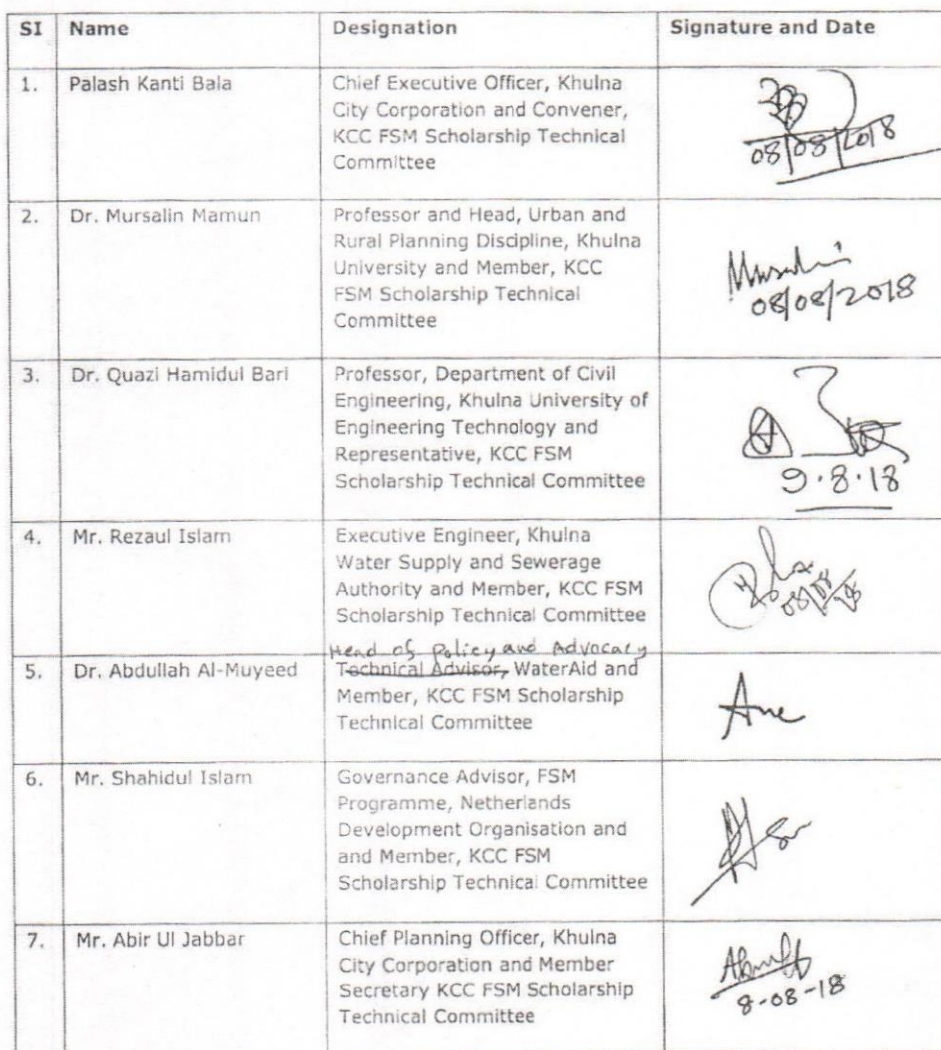 SI Name Designation Signature and Date
1. Palash Kanti Bala Chief Executive Officer, Khulna
City Corporation and Convener,
KCC FSM Scholarship Technical
Committee
08/08/2018
2. Dr. Mursalin Mamun Professor and Head, Urban and
Rural Planning Discipline, Khulna
University and Member, KCC
FSM Scholarship Technical
Committee
08/08/2018
3. Dr. Quazi Hamidul Bari Professor, Department of Civil
Engineering, Khulna University of
Engineering Technology and
Representative, KCC FSM
Scholarship Technical Committee
9.8.18
4. Mr. Rezaul Islam Executive Engineer, Khulna
Water Supply and Sewerage
Authority and Member, KCC FSM
Scholarship Technical Committee
Head of Policy and Advocacy
5. Dr. Abdullah Al-Muyeed Technical Advisor, WaterAid and
Member, KCC FSM Scholarship
Technical Committee
6. Mr. Shahidul Islam Governance Advisor, FSM
Programme, Netherlands
Development Organisation and
and Member, KCC FSM
Scholarship Technical Committee
7. Mr. Abir Ul Jabbar Chief Planning Officer, Khulna
City Corporation and Member
Secretary KCC FSM Scholarship
Technical Committee
8-08-18